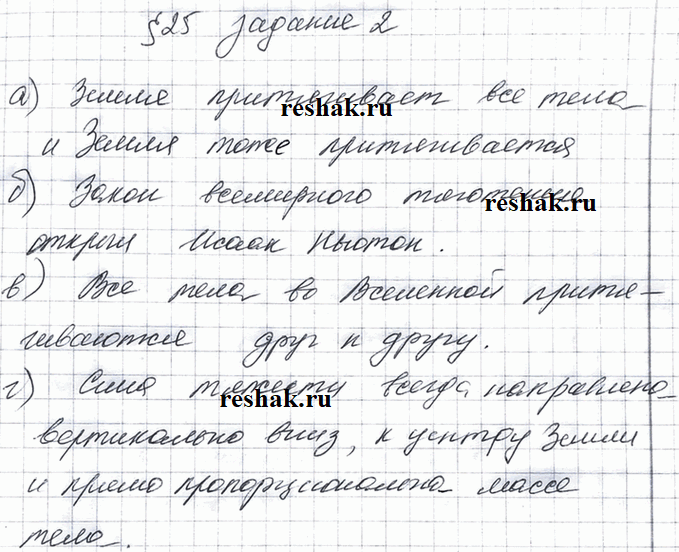 §25 задание 2
а) Земля притягивает все тела
и Земля тоже притягивается
б) Закон всемирного тяготенья
открыл Исаак Ньютон.
в) Все тела во Вселенной притя-
гиваются друг к другу.
г) Сила тяжести всегда направлена
вертикально вниз, к центру Земли
и прямо пропорциональна массе
тела.
reshak.ru
reshak.ru
reshak.ru